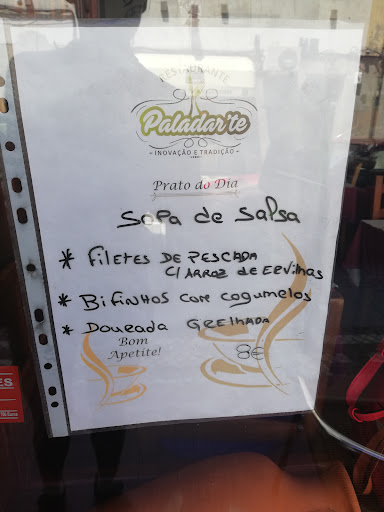 RESTAURANTE
Paladar'te
- INOVAÇÃO E TRADIÇÃO -
Prato do Dia
Sopa de Salsa
* Filetes DE PESCADA
C/ ARROZ de ERVilhas
* Bifinhos com cogumelos
* Dourada GRELHADA
Bom
Apetite!
8€